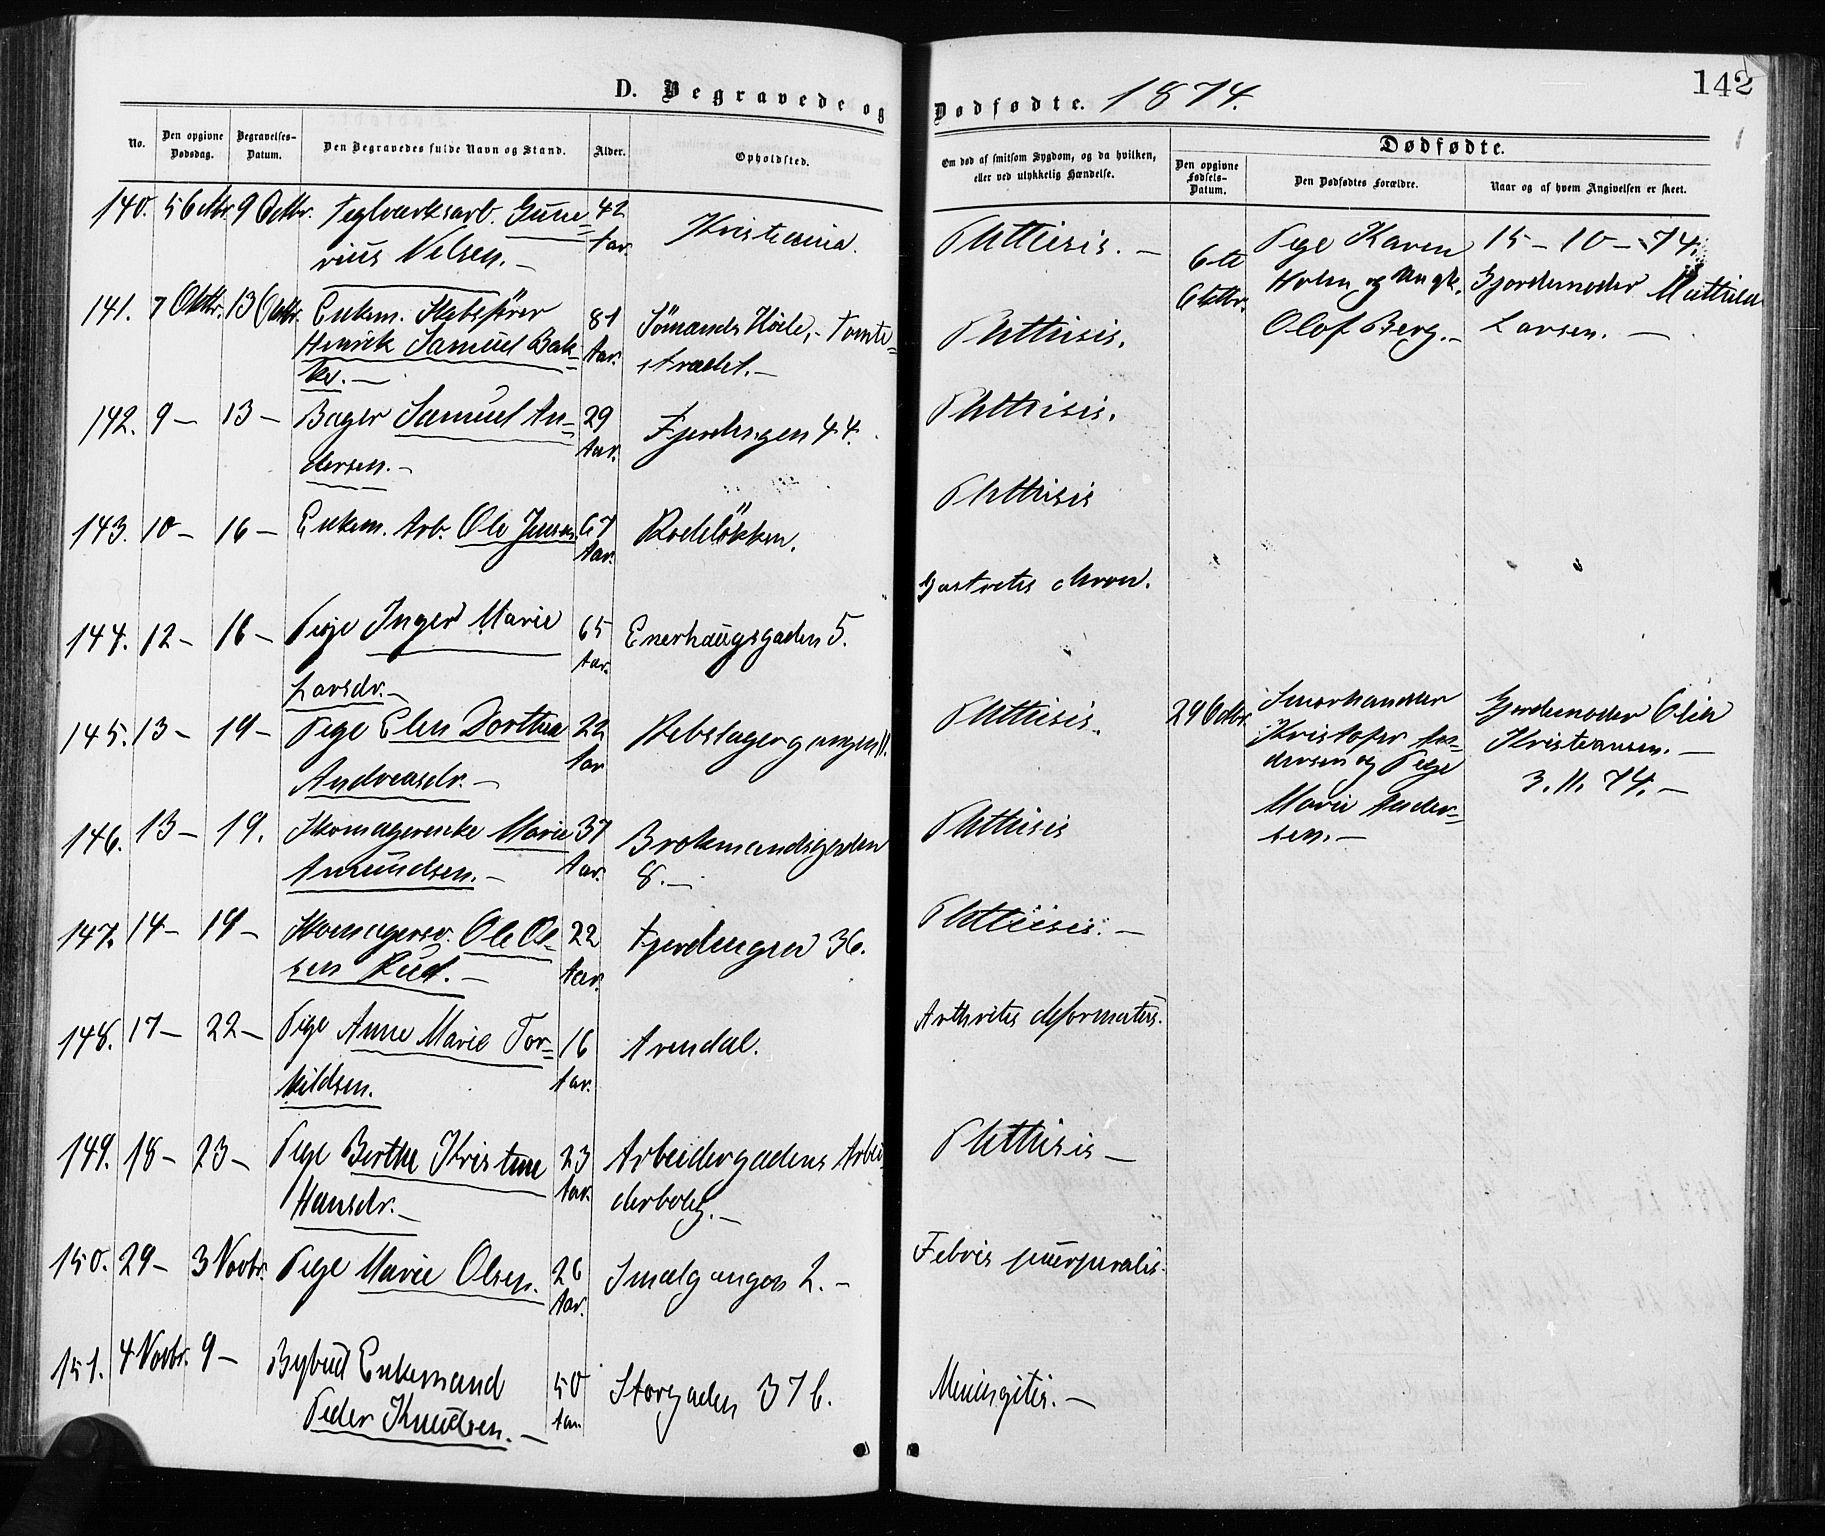 142
D. Begravede og Dødfødte. 1874.
No.
Den opgivne Dødsdag.
Begravelses-Datum.
Den Begravedes fulde Navn og Stand.
Alder.
Opholdsted.
Om død af smitsom Sygdom, og da hvilken,
eller ved ulykkelig Hændelse.
Dødfødte.
Den opgivne Fødsels-Datum.
Den Dødfødtes Forældre.
Naar og af hvem Angivelsen er skeet.
140. 5 Octbr. 9 Octbr. Teglværksarb. Gune- 42 Kristiania. Phthisis. —
rius Nilsen. — Aar.
141. 7 Oktbr. 13 Octbr. Enkem. Skibsfører 81 Sømands Hotel, Tomte- Phthisis.
Henrik Samuel Bak- Aar. strædet. —
ke. —
142. 9 — 13 — Bager Samuel An- 29 Fjerdingen 44. Phthisis.
dersen. — Aar.
143. 10 — 16 — Enkem. Arb. Ole Jensen 67 Rodeløkken. Phthisis
Aar.
144. 12 — 16 — Pige Inger Marie 65 Enerhaugsgaden 5. Gastritis chron.
Larsdr. — Aar.
145. 13 — 19 — Pige Elen Dorthea 22 Rebslagergangen 11. Phthisis.
Andreasdr. — Aar
146. 13 — 19. Skomagerenke Marie 37 Brokmandsgaden Phthisis
Amundsen. — Aar. 8. —
147. 14 — 19 — Skomagersv. Ole Ol- 22 Fjerdingen 36. Phthisis. —
sen Rud. — Aar.
148. 17 — 22 — Pige Anne Marie Tor- 16 Arendal. Arthritis deformatus.
kildsen. Aar.
149. 18 — 23 — Pige Berthe Kristine 23 Arbeidergadens Arbei- Phthisis —
Hansdr. — Aar. derbolig. —
150. 29 — 3 Novbr. Pige Marie Olsen. 26 Smalgangen 2. — Febris puerperalis.
Aar.
151. 4 Novbr. 9 — Bybud Enkemand 50 Storgaden 37 b. Meningitis. —
Peder Knudsen. — Aar.
6te Pige Karen 15 – 10 – 74.
Octbr. Holm og Ungk. Gjordemoder Mathilde
Olof Berg. — Larsen. —
29 Octbr. Smørhandler Gjordemoder Olea
Kristofer An- Kristiansen. —
dersen og Pige 3. 11. 74. —
Marie Ander-
sen. —